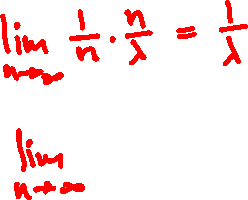 lim n→∞ 1/n · n/λ = 1/λ
lim n→∞